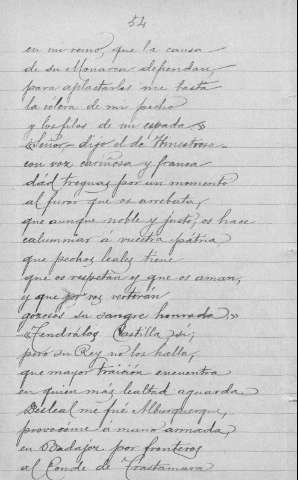 54
en mi reino, que la causa
de su Monarca defiendan,
para aplastarlos me basta
la cólera de mi pecho
y los filos de mi espada.»
«Señor, dijo el de Hinestrosa
con voz cariñosa y franca
dad treguas por un momento
al furor que os arrebata,
que aunque noble y justo, os hace
calumniar á vuestra pátria
que pechos leales tiene
que os respetan y que os aman,
y que por vos vertieran
gozosos su sangre honrada.»
«Tendrálos Castilla, sí;
pero su Rey no los halla,
que mayor traición encuentra
en quien más lealtad aguarda.
Desleal me fué Alburquerque,
provocóme á mano armada,
en Badajoz por fronteros
al Conde de Trastamara